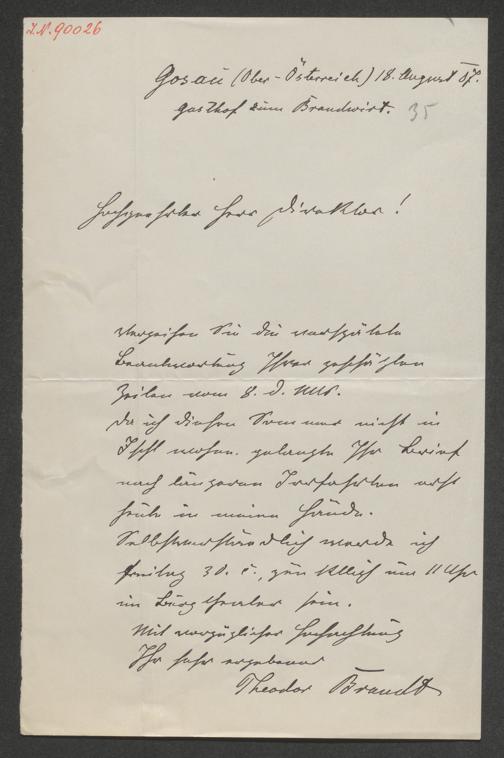 I.N. 90026
Gosau (Ober-Österreich) 18. August 87.
Gasthof zum Brandwirt. 35
Hochgeehrter Herr Direktor!
Verzeihen Sie die verspätete
Beantwortung Ihrer geschätzten
Zeilen vom 8. d. Mts.
Da ich diesen Sommer nicht in
Ischl wohne, gelangte Ihr Brief
nach längeren Irrfahrten erst
heute in meine Hände.
Selbstverständlich werde ich
Freitag 30. c., pünktlich um 11 Uhr
im Burgtheater sein.
Mit vorzüglicher Hochachtung
Ihr sehr ergebener
Theodor Brandt